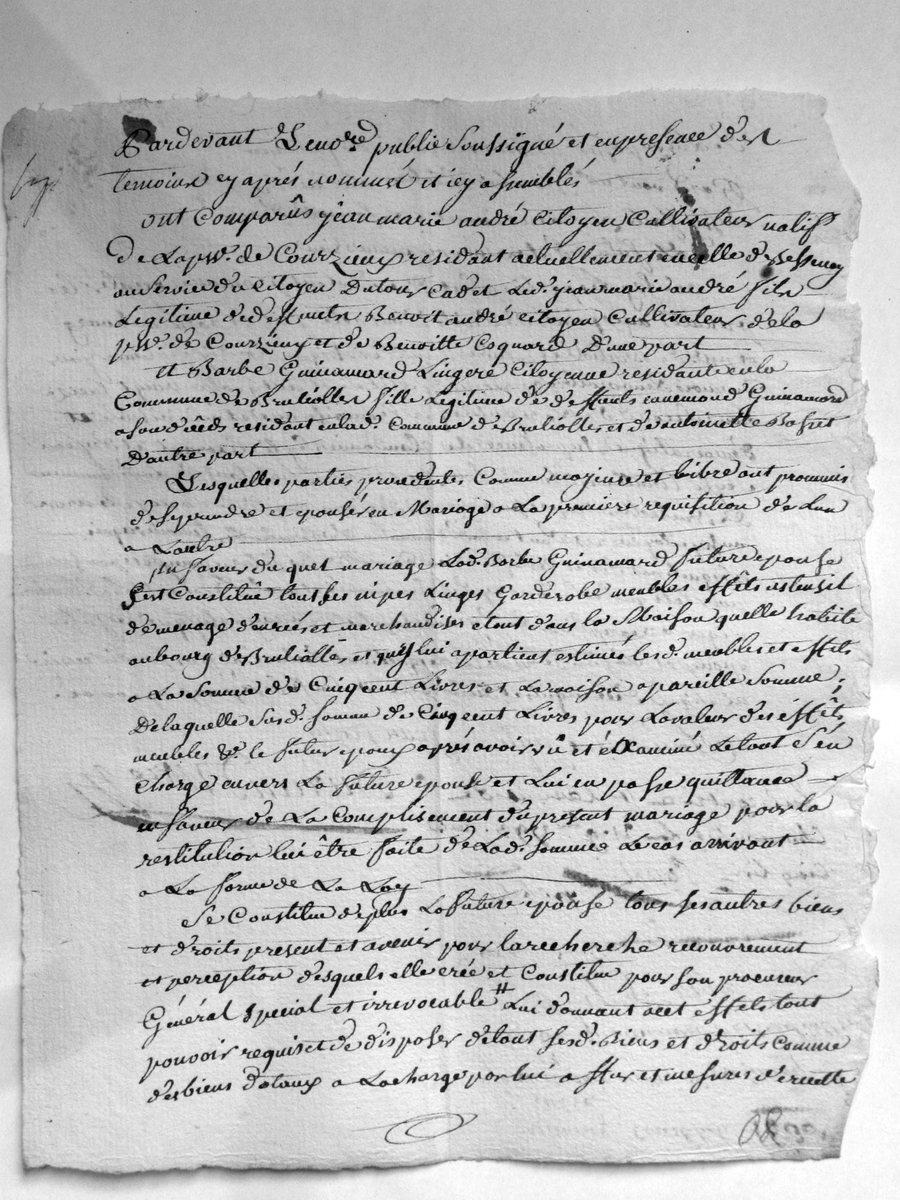 Pardevant Le no.re public soussigné et en presence des
temoins cy aprés nommés et icy assemblés
ont Comparûs jean marie andré Citoyen Cultivateur natif
De La p.sse de Courzieux residant actuellement en celle de Bessenay
au service du Citoyen Dutour Cadet Led. jean marie andré fils
Legitime de defunts Benoit andré citoyen Cultivateur de la
p.sse de Courzieux et de Benoitte Coquard D'une part
Et Barbe Guinamard Lingere Citoyenne residante en la
Commune de Brulioles fille Legitime de defunts ennemond Guinamard
a son décéds residant en lad. Commune de Brulioles et de antoinette Basset
D'autre part
Lesquelles parties procedentes Comme majeurs et libre ont promis
de se prendre et epouser en Mariage a La premiere requisition de L'un
a L'autre
En faveur du quel mariage Lad. Barbe Guinamard future epouse
s'est Constituê tous ses nipes Linges Garderobe meubles effêts ustensil
de menage denrées et marchandises etant dans La Maison quelle habite
au bourg de Bruliolles et qui lui apartient estimés lesd. meubles et effêts
a La Somme de Cinq cent Livres et La maison a pareille somme,
De laquelle susd. somme de Cinq cent Livres pour La valeur des effêts
meubles &c. le futur epoux aprés avoir vû et éxaminé Le tout S'en
charge envers La future epouse et Lui en passe quittance
en faveur de La Complisement du present mariage pour la
restitution lui être faite de Lad. somme Le cas arrivant
a La forme de La Loy
Se Constitue de plus La future epouse tous ses autres biens
et droits present et avenir pour la recherche recouvrement
et perception desquels elle crée et Constitue pour son procureur
Général special et irrevocable # Lui donnant a cet effêts tout
pouvoir requis et de disposer de tout sesd. Biens et droits comme
des biens dotaux a La charge par lui a fur et mesures d'icelle